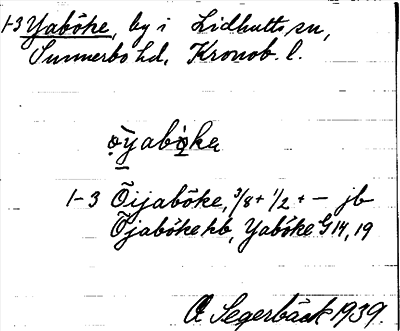 1-3 Yaböke, by i Lidhults sn,
Sunnerbo hd, Kronob. l.
öyaböka
1-3 Öijaböke, 3/8 + 1/2 + — jb
Öjaböke hb, Yaböke G 14, 19
A Segerbäck 1939.